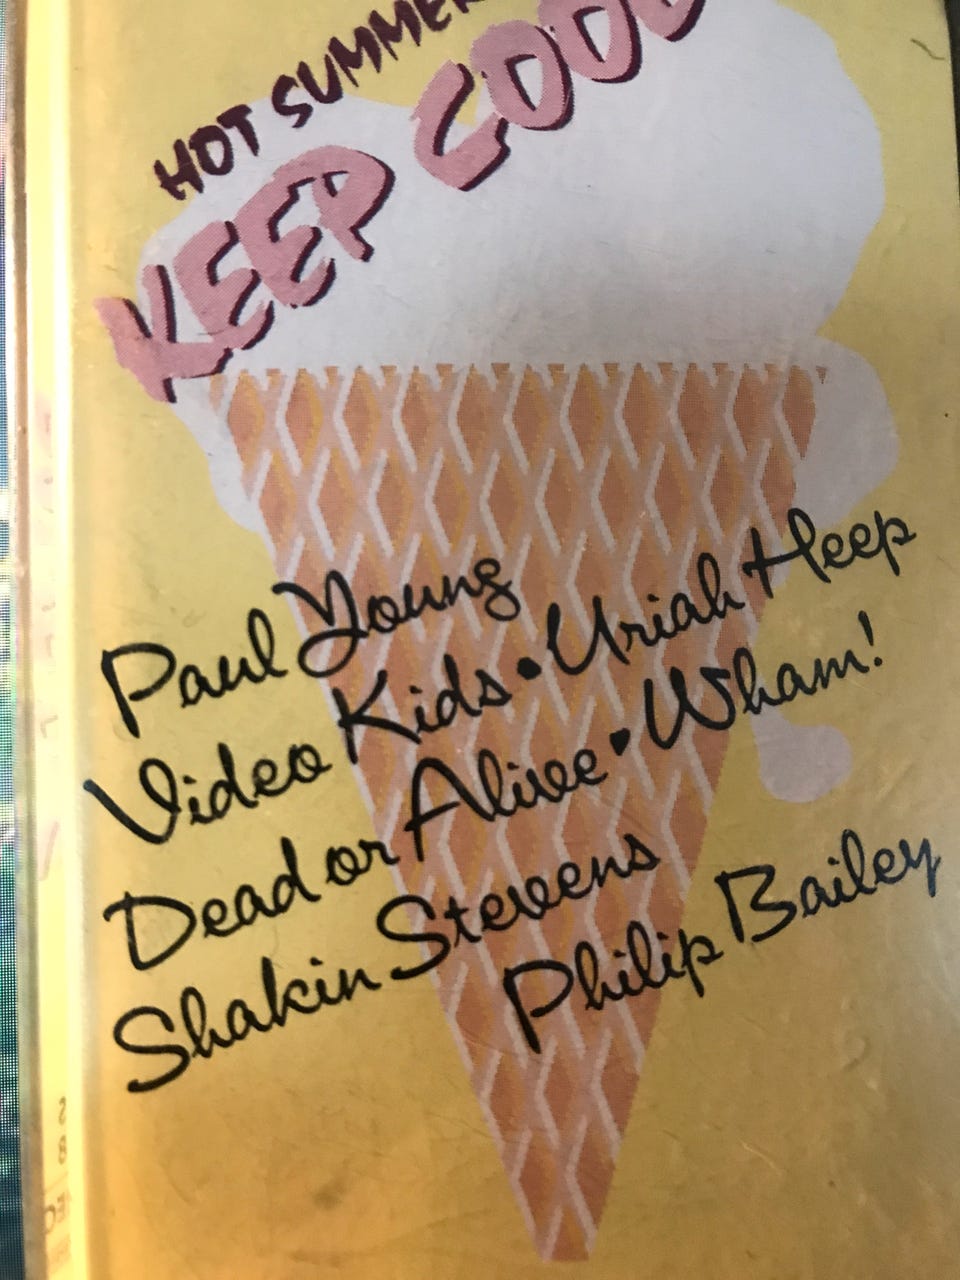 HOT SUMMER
KEEP COOL
Paul Young
Video Kids • Uriah Heep
Dead or Alive • Wham!
Shakin Stevens
Philip Bailey